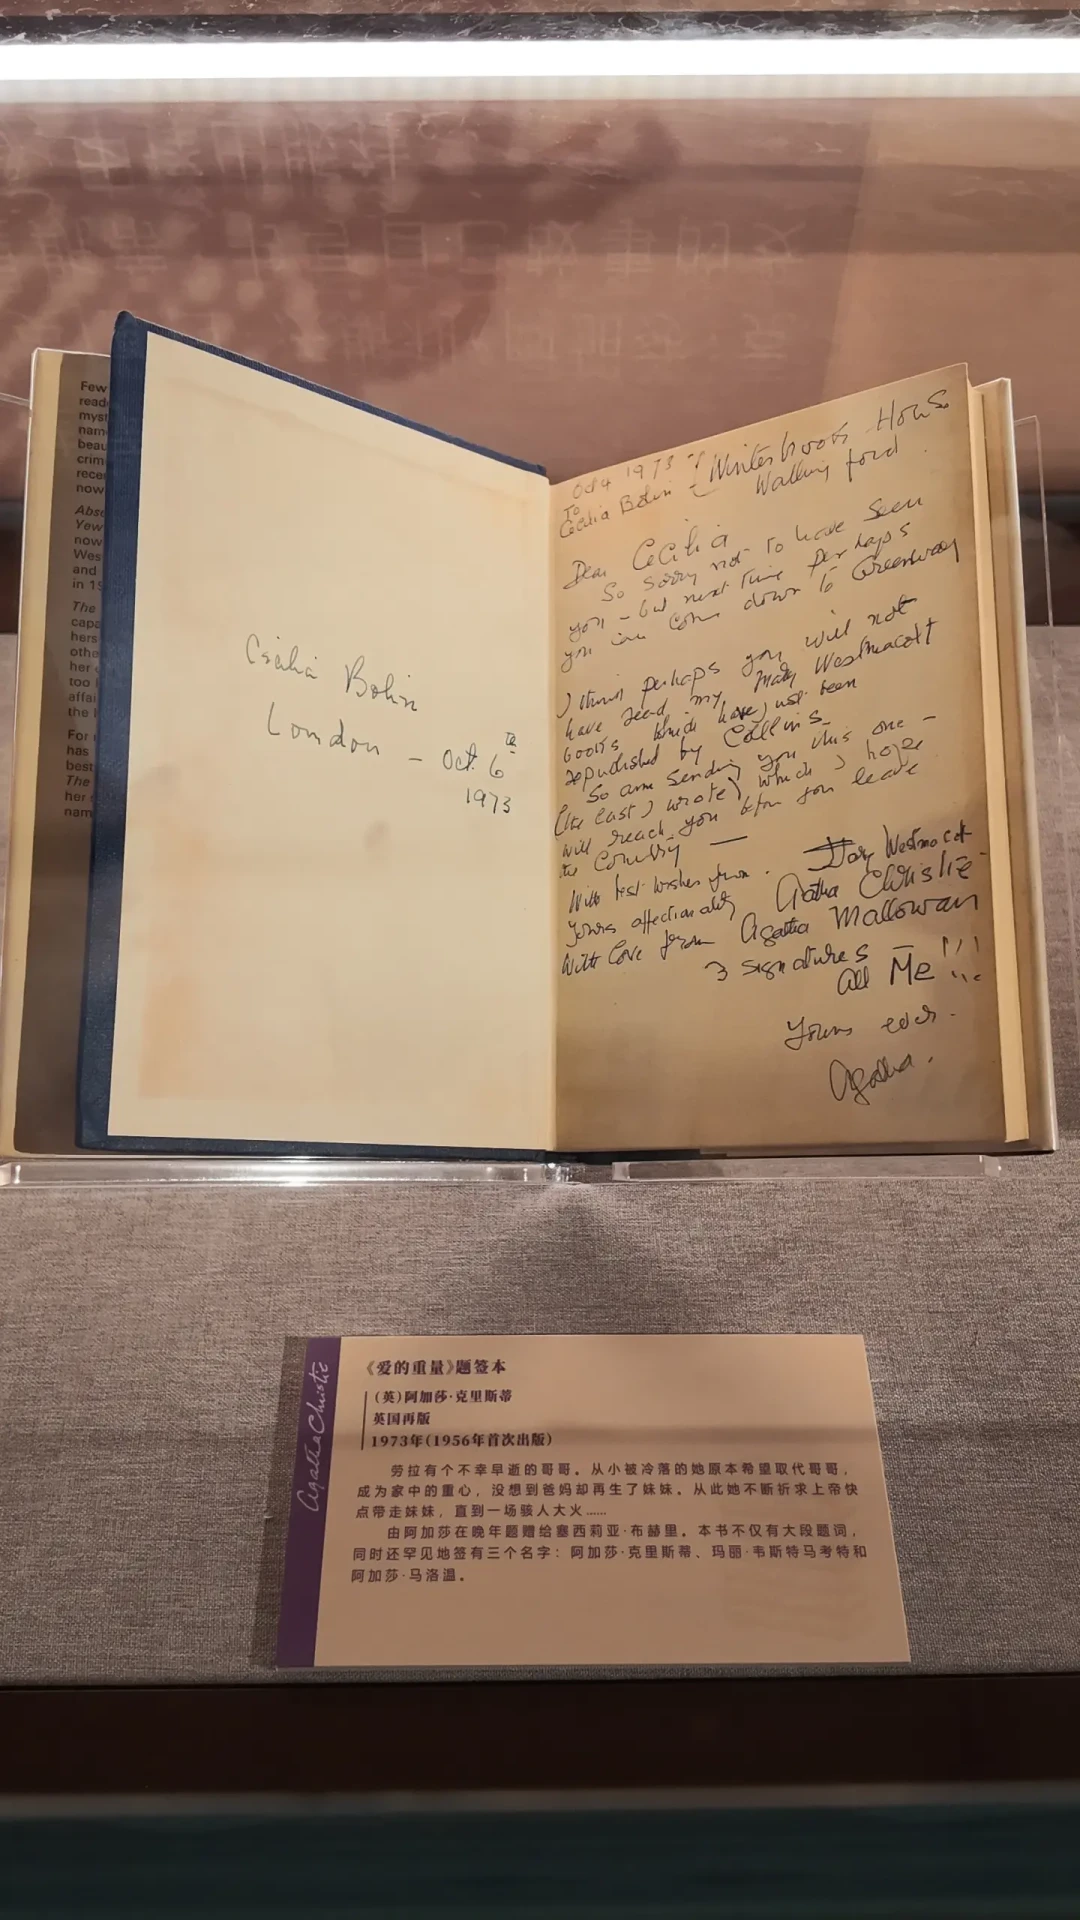 Few
read
myst
nam
beau
crim
recen
now
Abse
Yew
now
Wes
and
in 19
The
capa
hers
othe
her
too
affai
the
For
has
best
The
her
nam
Cecilia Bolin
London - Oct. 6th
1973
Oct 4 1973
Winterbrook House
Wallingford.
To
Cecilia Bolin
Dear Cecilia
So sorry not to have seen
you - but next time perhaps
you can come down to Greenway
I think perhaps you will not
have read my Mary Westmacott
books which have not been
republished by Collins
So am sending you this one -
(the last I wrote) which I hope
will reach you before you leave
the Country —
With best wishes from. Mary Westmacott
Yours affectionately Agatha Christie
With love from Agatha Mallowan
3 signatures
All Me !!!
Yours ever.
Agatha.
Agatha Christie
《爱的重量》题签本
（英）阿加莎·克里斯蒂
英国再版
1973年（1956年首次出版）
劳拉有个不幸早逝的哥哥。从小被冷落的她原本希望取代哥哥，
成为家中的重心，没想到爸妈却再生了妹妹。从此她不断祈求上帝快
点带走妹妹，直到一场骇人大火……
由阿加莎在晚年题赠给塞西莉亚·布赫里。本书不仅有大段题词，
同时还罕见地签有三个名字：阿加莎·克里斯蒂、玛丽·韦斯特马考特和
阿加莎·马洛温。